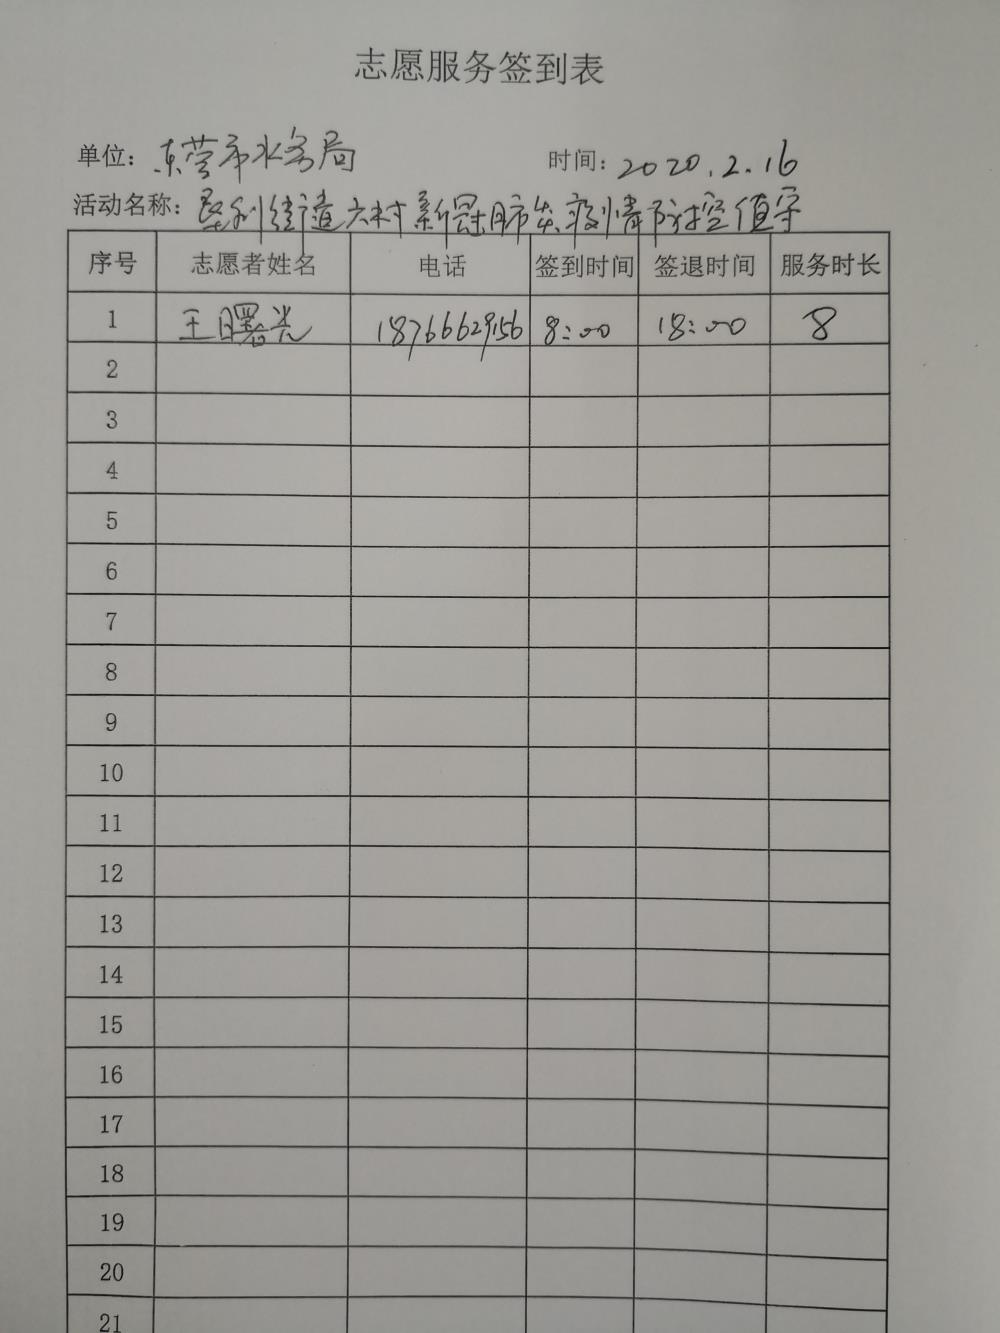 志愿服务签到表
单位：东营市水务局 时间：2020.2.16
活动名称：垦利街道六村新冠肺炎疫情防控值守
序号 志愿者姓名 电话 签到时间 签退时间 服务时长
1 王曙光 18766629156 8:00 18:00 8
2
3
4
5
6
7
8
9
10
11
12
13
14
15
16
17
18
19
20
21